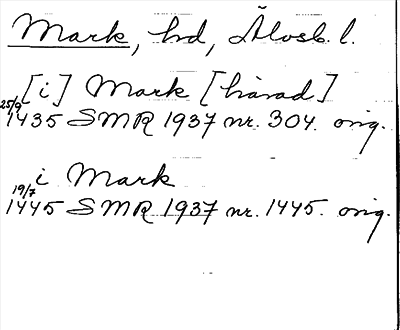 Mark, hd, Älvsb. l.
[i] Mark [härad]
25/9 1435 SMR 1937 nr. 304. orig.
i Mark
19/7 1445 SMR 1937 nr. 1445. orig.